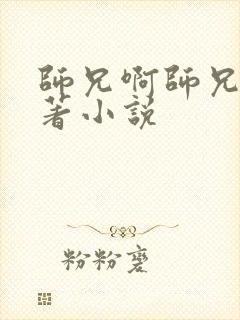 師兄啊師兄
著小説
粉粉蹇